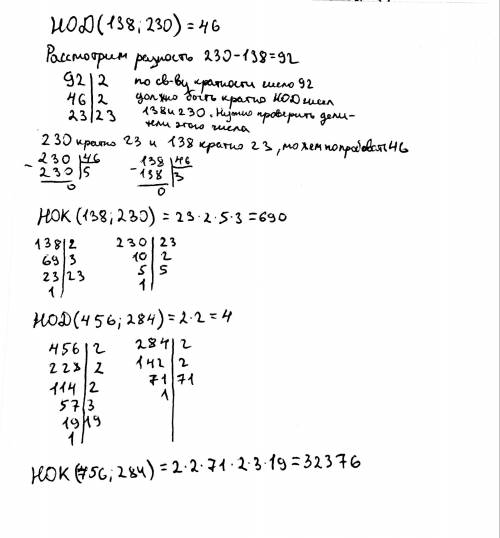 НОД(138; 230) = 46
Рассмотрим разность 230-138=92
92|2 по св-ву кратности число 92
46|2 должно быть кратно НОД чисел
23|23 138 и 230. Нужно проверить дели-
тели этого числа
230 кратно 23 и 138 кратно 23, можем попробовать 46
-230|46 -138|46
230|5 138|3
0 0
НОК(138; 230) = 23·2·5·3=690
138|2 230|23
69|3 10|2
23|23 5|5
1 1
НОД(456; 284) = 2·2=4
456|2 284|2
228|2 142|2
114|2 71|71
57|3 1
19|19
1
НОК(456; 284) = 2·2·71·2·3·19=32376